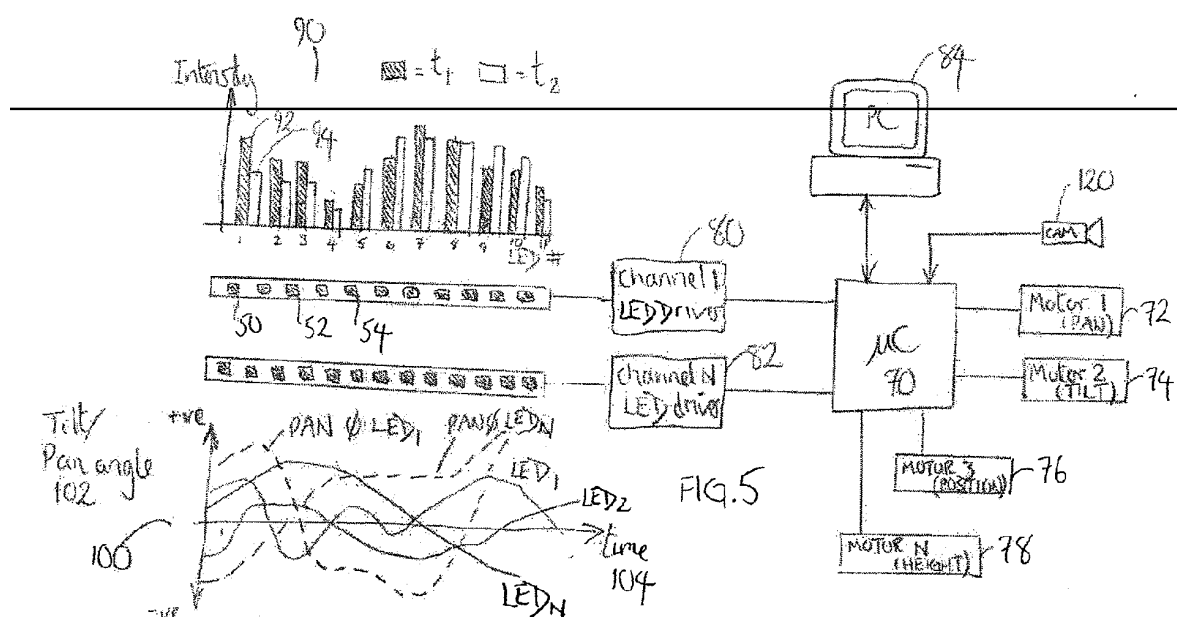 90
Intensity
= t1 = t2
92
94
1 2 3 4 5 6 7 8 9 10 11
LED #
50 52 54
84
PC
120
CAM
80
Channel 1
LED Driver
82
Channel N
LED driver
μC
70
Motor 1
(PAN)
72
Motor 2
(TILT)
74
MOTOR 3
(POSITION)
76
MOTOR N
(HEIGHT)
78
FIG.5
Tilt/
Pan angle
102
+ve
-ve
100
PAN Ø LED1
PAN Ø LEDN
LED1
LED2
LEDN
time
104